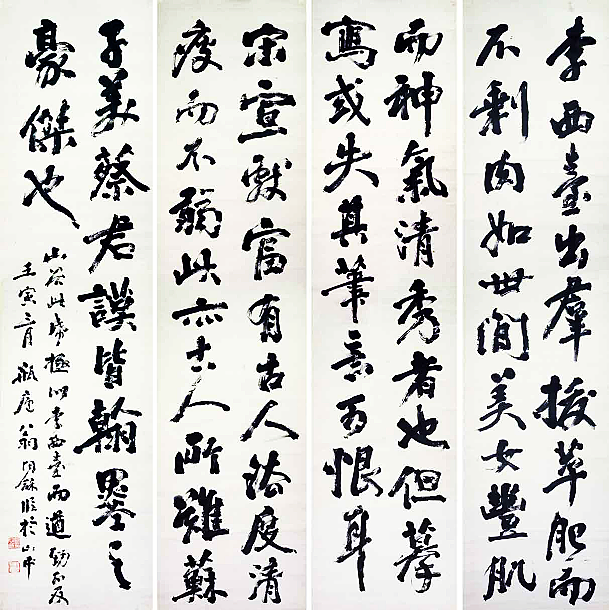 李西臺出羣拔萃肥而
不剩肉如世間美女豐肌
而神氣清秀者也但摹
寫或失其筆意可恨耳
宋宣獻富有古人法度清
瘦而不弱此亦古人所難蘇
子美蔡君謨皆翰墨之
豪傑也
山谷此帖極似李西臺而遒勁不及
壬寅月瓶庵翁同龢臨於山中